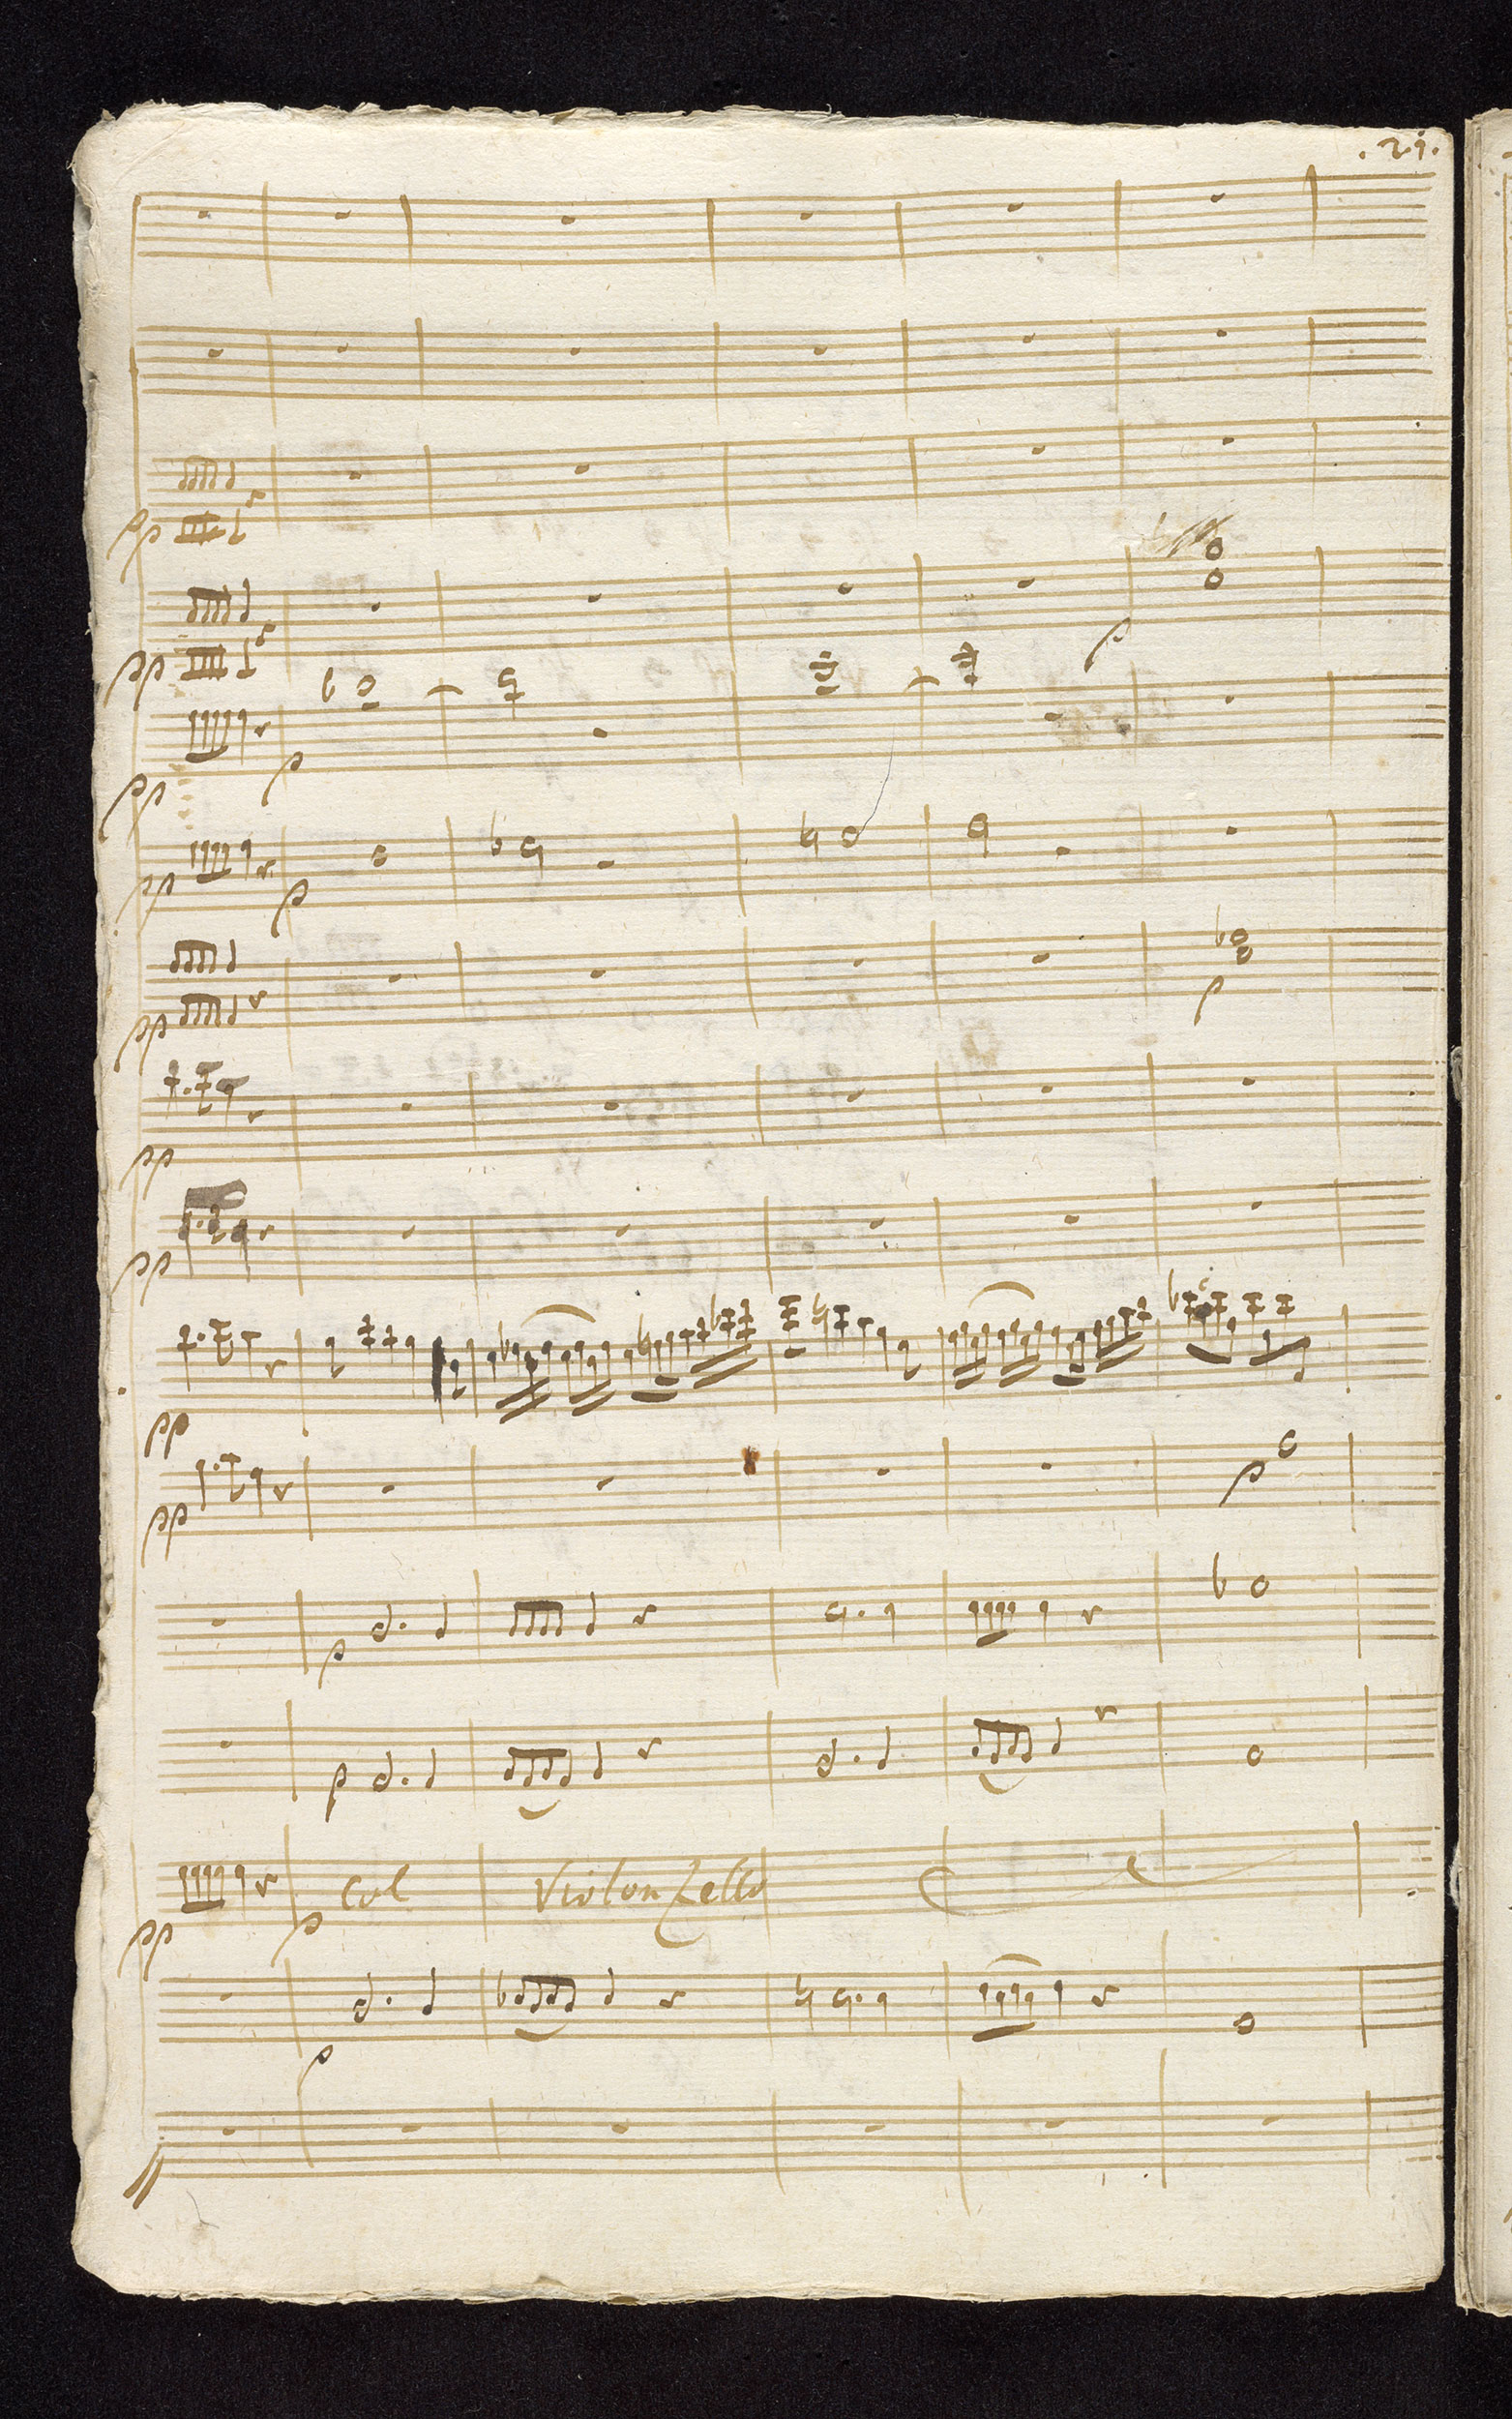 .21.
pp
pp
p
pp
p
pp
p
pp
p
pp
pp
pp
pp
p
p
p
col Violonzello
pp
p
p